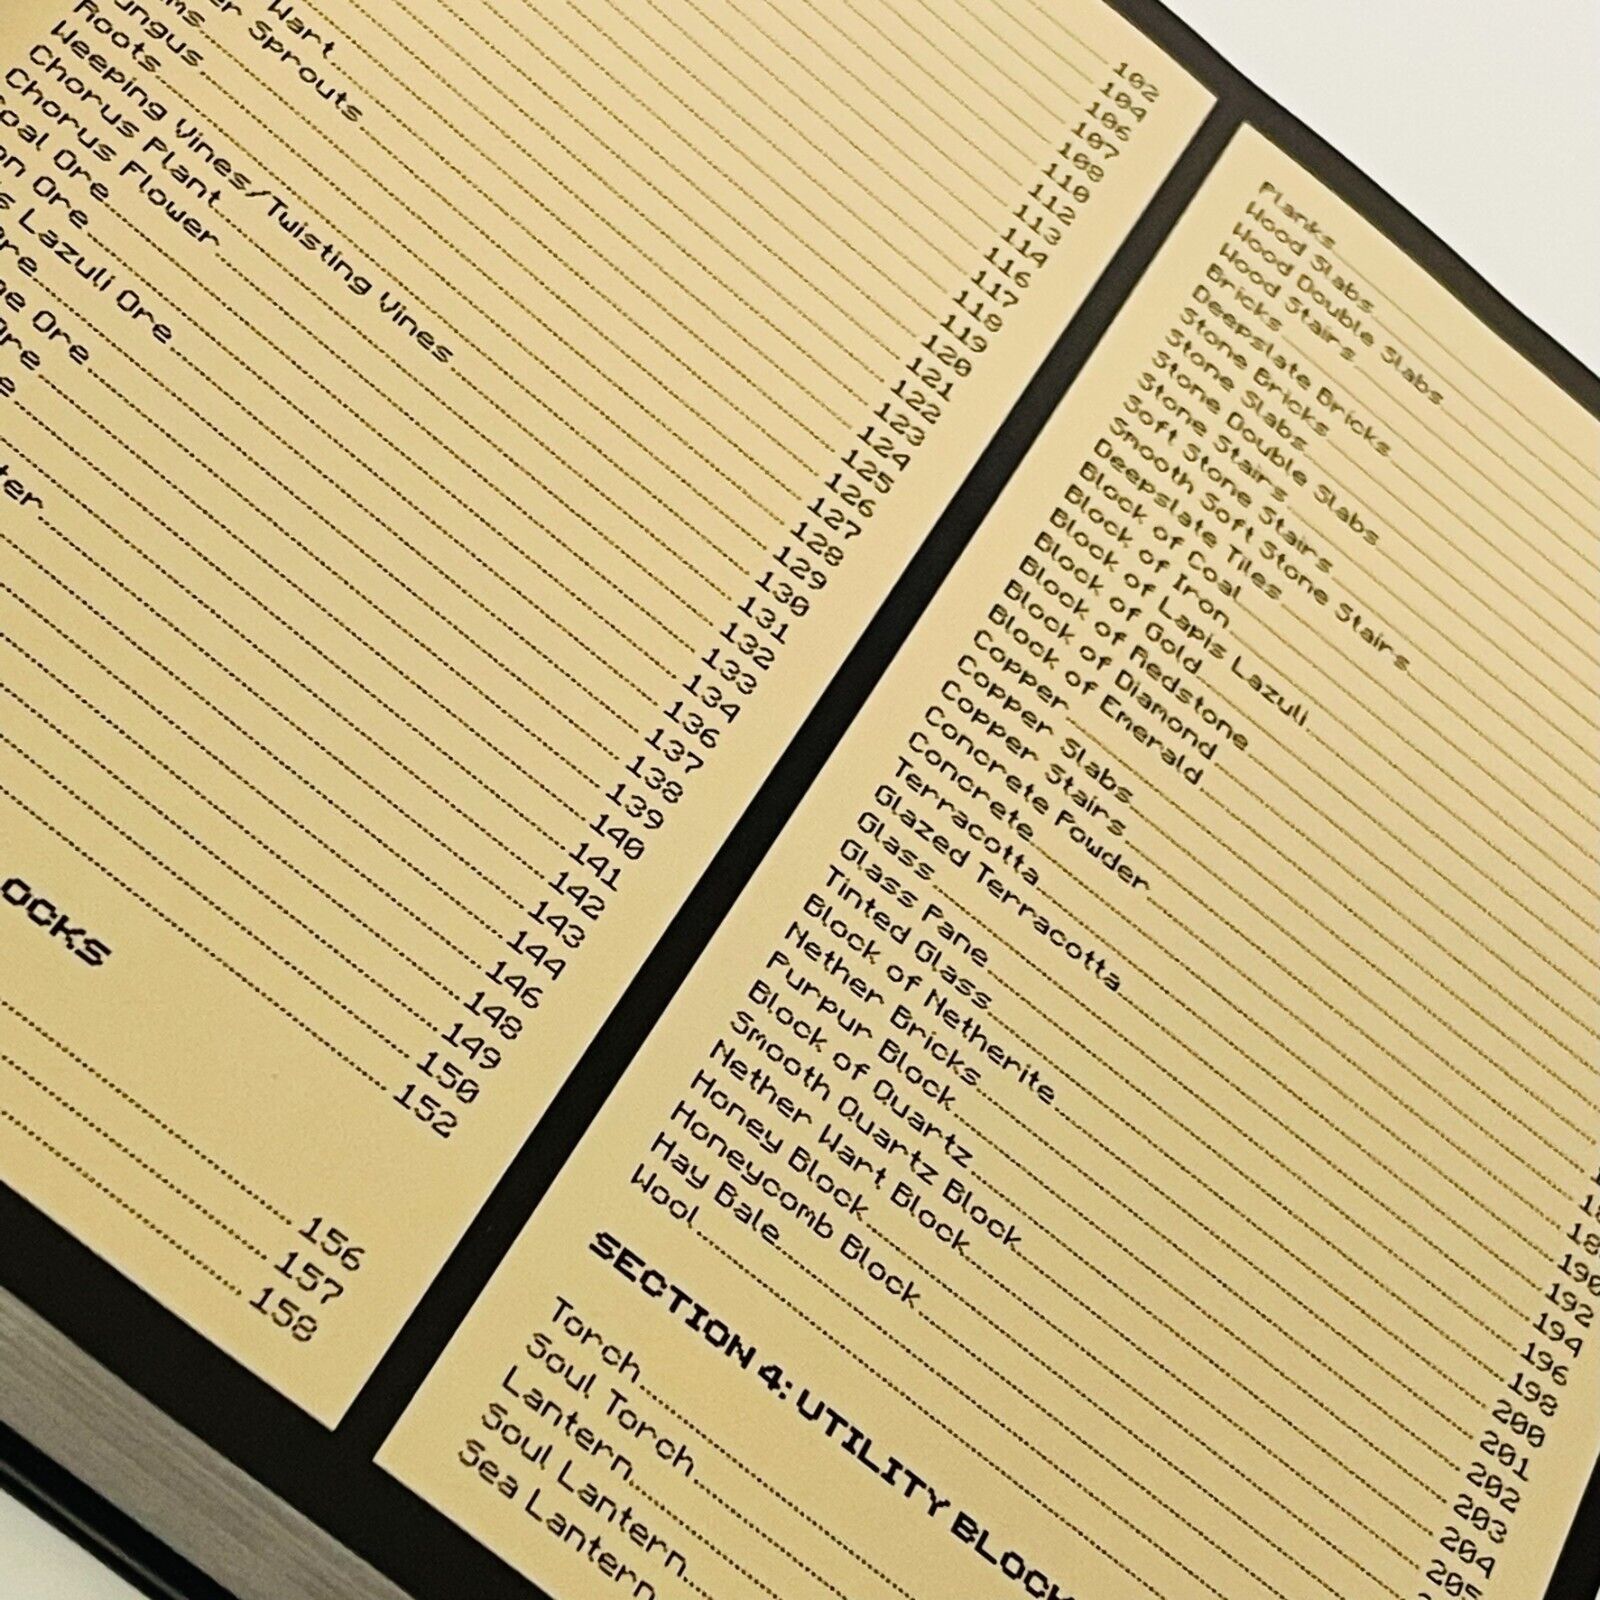 Wart
Sprouts
Roots
Weeping Vines/Twisting Vines
Chorus Plant
Chorus Flower
oal Ore
on Ore
s Lazuli Ore
re
e Ore
Ore
e
ter
102
104
106
107
108
110
112
113
114
116
117
118
119
120
121
122
123
124
125
126
127
128
129
130
131
132
133
134
136
137
138
139
140
141
142
143
144
146
148
149
150
152
OCKS
156
157
158
Planks
Wood Slabs
Wood Double Slabs
Wood Stairs
Bricks
Deepslate Bricks
Stone Bricks
Stone Slabs
Stone Double Slabs
Stone Stairs
Soft Stone Stairs
Smooth Soft Stone Stairs
Deepslate Tiles
Block of Coal
Block of Iron
Block of Lapis Lazuli
Block of Gold
Block of Redstone
Block of Diamond
Block of Emerald
Copper
Copper Slabs
Copper Stairs
Concrete Powder
Concrete
Terracotta
Glazed Terracotta
Glass
Glass Pane
Tinted Glass
Block of Netherite
Nether Bricks
Purpur Block
Block of Quartz
Smooth Quartz Block
Nether Wart Block
Honey Block
Honeycomb Block
Hay Bale
Wool
190
192
194
196
198
200
201
202
203
204
205
SECTION 4: UTILITY BLOCK
Torch
Soul Torch
Lantern
Soul Lantern
Sea Lantern